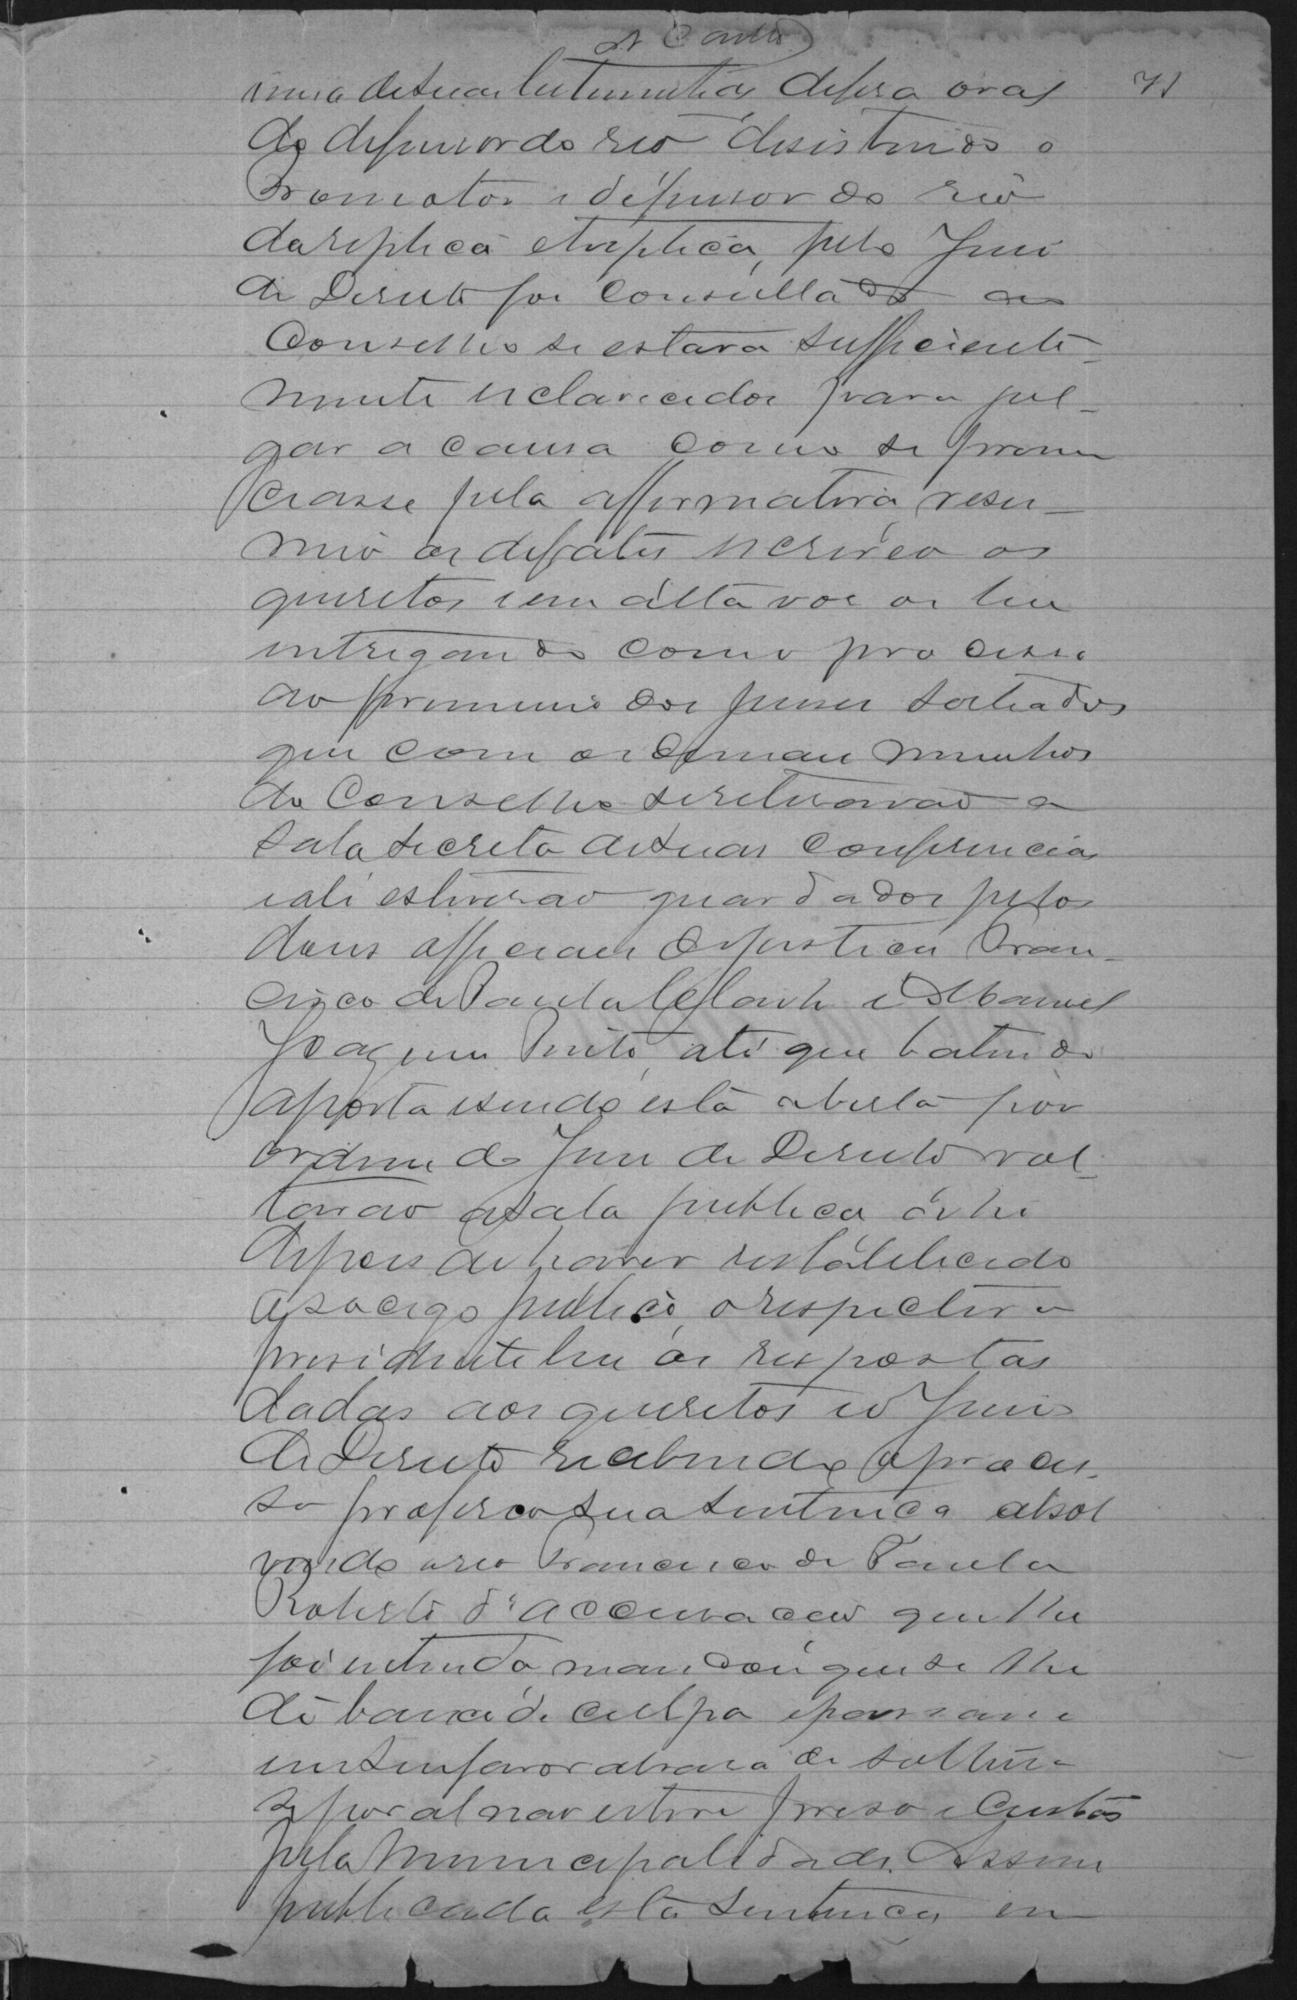 71
uma de suas testemunhas, defesa oral
do defensor do reo desistindo o
Promotor e defensor do reo
da replica e treplica, pelo Juis
de Direito foi consultado ao
Conselho se estava sufficiente-
mente esclarecidos para jul-
gar a causa como se pronun
ciasse pela affirmativa, resu-
mio os debates escreveo os
quesitos e em alta voz os leu
entregando com o processo
ao primeiro dos juises sorteados
que com os demais membros
do Conselho se retirarão a
sala secreta de suas conferencias
e ali estiverão guardados pelos
dous officiaes de justica Fran-
cisco de Paula e Manoel
Joaquim Pinto, até que batendo
a porta e sendo esta aberta por
ordem do Juis de Direito vol-
tarão a sala publica onde
depois de haver restabelecido
o socego publico, o respectivo
presidente leu as respostas
dadas aos quesitos e o Juis
de Direito recebendo o proces-
so proferio sua sentença absol
vendo o reo Francisco de Paula
Roberto d'accusacao que lhe
foi intentada mandou que se lhe
dê baixa de culpa e passasse
em seu favor alvará de soltura
se por al não estive preso e custas
pela Municipalidade. Assim
publicada esta sentença em